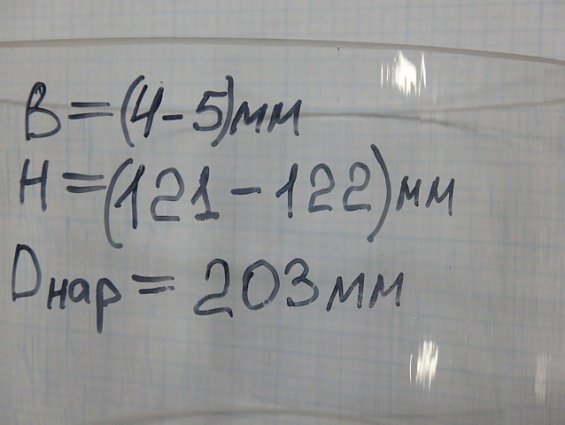 B = (4-5)мм
H = (121-122)мм
Dнар = 203мм